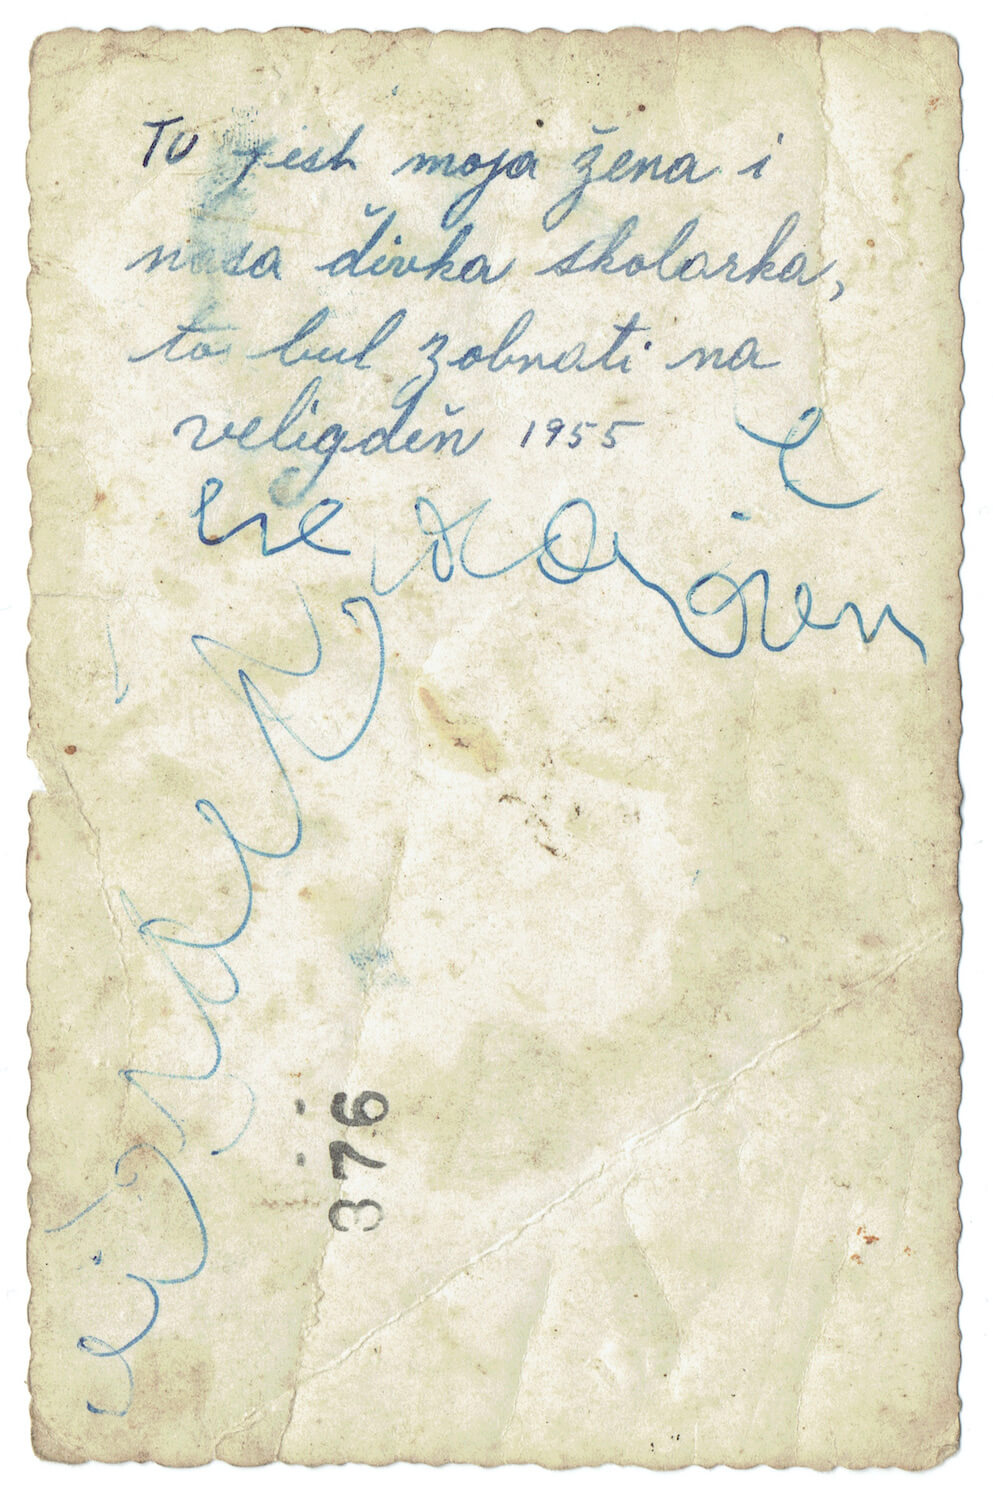 TU jest moja žena i
naša ďivka skolarka,
to bul zobrati na
veligděň 1955
376